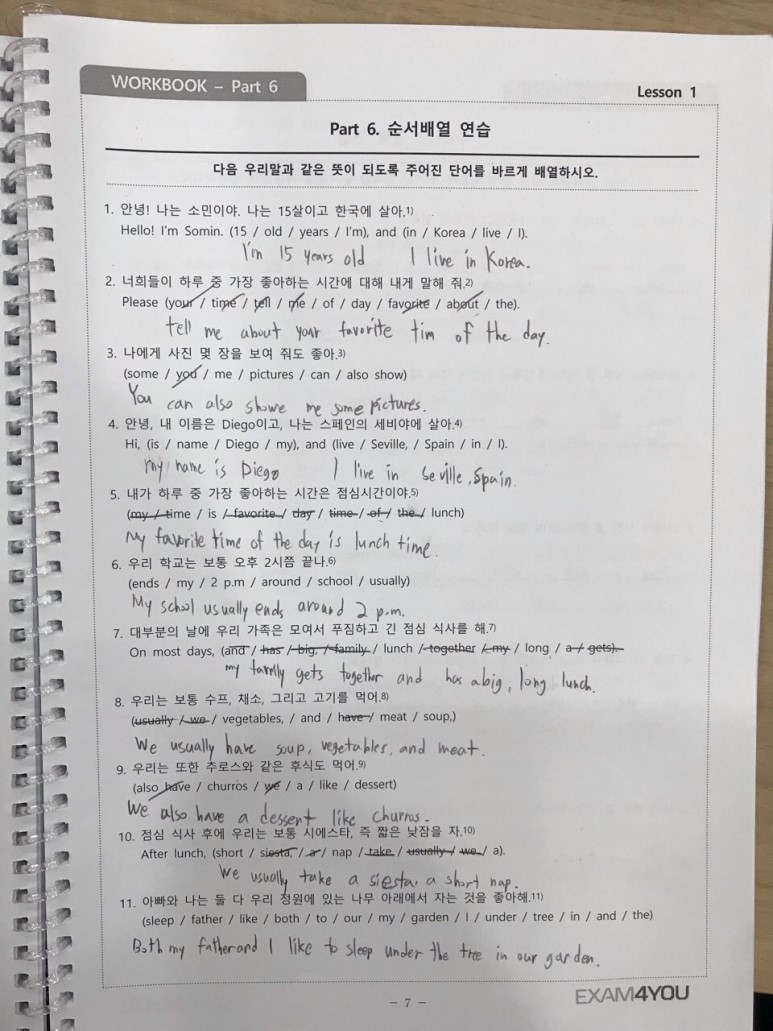 WORKBOOK – Part 6
Lesson 1
Part 6. 순서배열 연습
다음 우리말과 같은 뜻이 되도록 주어진 단어를 바르게 배열하시오.
1. 안녕! 나는 소민이야. 나는 15살이고 한국에 살아.1)
Hello! I'm Somin. (15 / old / years / I'm), and (in / Korea / live / I).
I'm 15 years old I live in Korea.
2. 너희들이 하루 중 가장 좋아하는 시간에 대해 내게 말해 줘.2)
Please (your / time / tell / me / of / day / favorite / about / the).
tell me about your favorite tim of the day.
3. 나에게 사진 몇 장을 보여 줘도 좋아.3)
(some / you / me / pictures / can / also show)
You can also showe me some pictures.
4. 안녕, 내 이름은 Diego이고, 나는 스페인의 세비야에 살아.4)
Hi, (is / name / Diego / my), and (live / Seville, / Spain / in / I).
my name is Diego I live in Seville, Spain.
5. 내가 하루 중 가장 좋아하는 시간은 점심시간이야.5)
(my / time / is / favorite / day / time / of / the / lunch)
My favorite time of the day is lunch time.
6. 우리 학교는 보통 오후 2시쯤 끝나.6)
(ends / my / 2 p.m / around / school / usually)
My school usually ends around 2 p.m.
7. 대부분의 날에 우리 가족은 모여서 푸짐하고 긴 점심 식사를 해.7)
On most days, (and / has / big, / family / lunch / together / my / long / a / gets).
my family gets together and has a big, long lunch.
8. 우리는 보통 수프, 채소, 그리고 고기를 먹어.8)
(usually / we / vegetables, / and / have / meat / soup,)
We usually have soup, vegetables, and meat.
9. 우리는 또한 추로스와 같은 후식도 먹어.9)
(also have / churros / we / a / like / dessert)
We also have a dessent like churros.
10. 점심 식사 후에 우리는 보통 시에스타, 즉 짧은 낮잠을 자.10)
After lunch, (short / siesta, / a / nap / take / usually / we / a).
We usually take a siesta, a short nap.
11. 아빠와 나는 둘 다 우리 정원에 있는 나무 아래에서 자는 것을 좋아해.11)
(sleep / father / like / both / to / our / my / garden / I / under / tree / in / and / the)
Both my father and I like to sleep under the tree in our garden.
– 7 –
EXAM4YOU